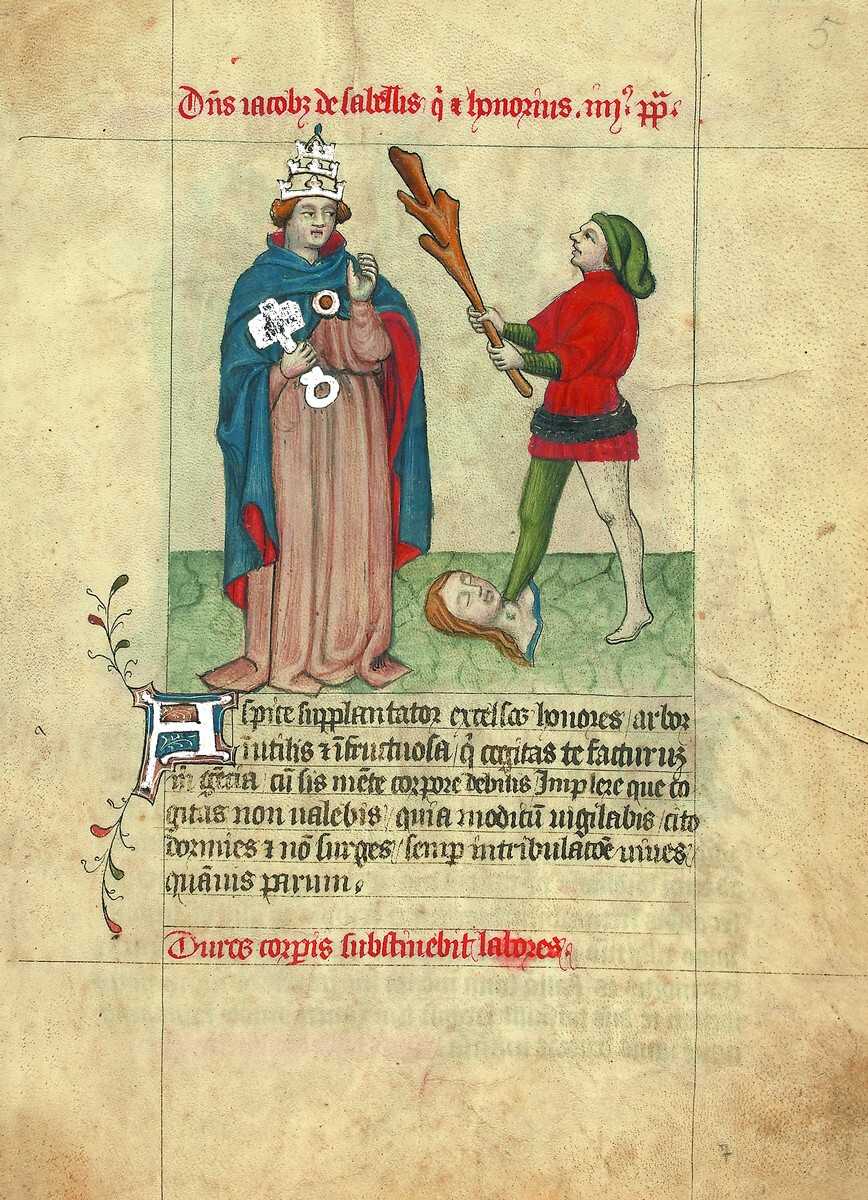 5
Dns iacobz de sabellis q̇ ⁊ honorius . iiij° pp̄.
Aspice supplantator excelsos honores / arbor
inutilis ⁊ īfructuosa / q̇ cogitas te facturuz
cū sis mēte corpore debilis Implere que co
gitas non ualebis / quia modicū uigilabis / cito
dormies ⁊ nō surges / semp in tribulacōe uiues
quāuis parum.
Duros corpīs substinebit labores.
7